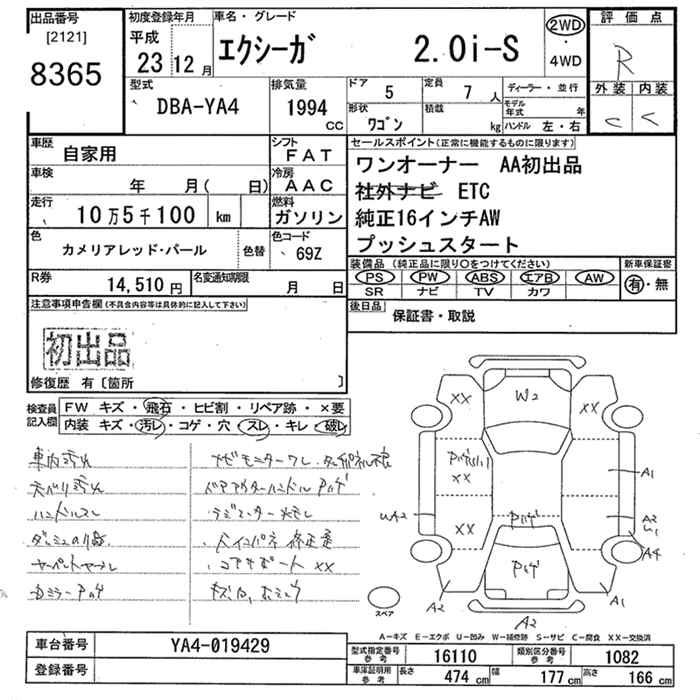 出品番号
[2121]
8365
初度登録年月
平成
23 12月
車名・グレード
エクシーガ 2.0i-S
2WD
・
4WD
評価点
R
外装 内装
C C
型式
DBA-YA4
排気量
1994
CC
ドア
5
定員
7 人
形状
ワゴン
積載
kg
ディーラー・並行
モデル年式 年
ハンドル 左・右
車歴
自家用
シフト
FAT
車検
年 月( 日)
冷房
AAC
走行
10万5千100 km
燃料
ガソリン
色
カメリアレッド・パール
色替
色コード
69Z
R券
14,510円
名変通知期限
月 日
セールスポイント(正常に機能するものに限ります)
ワンオーナー AA初出品
社外ナビ ETC
純正16インチAW
プッシュスタート
装備品 (純正品に限り○をつけてください)
PS PW ABS エアB AW
SR ナビ TV カワ
新車保証書
有・無
後日品
保証書・取説
注意事項申告欄(不具合内容等は具体的に記入して下さい)
初出品
修復歴 有〔箇所 〕
検査員記入欄
FW キズ・飛石・ヒビ割・リペア跡・×要
内装 キズ・汚レ・コゲ・穴・スレ・キレ・破レ
車内汚れ
天張り汚れ
ハンドルスレ
ドアアウターハンドルPハゲ
コアサポートXX
XX
W2
XX
XX
XX
Pハゲ
Pハゲ
UA2
A1
A2
A4
A2
A1
A2
スペア
A-キズ E-エクボ U-凹み W-補修跡 S-サビ C-腐食 XX-交換済
車台番号
YA4-019429
登録番号
型式指定番号
参考
16110
類別区分番号
参考
1082
車庫証明用
参考
長さ
474 cm
幅
177 cm
高さ
166 cm